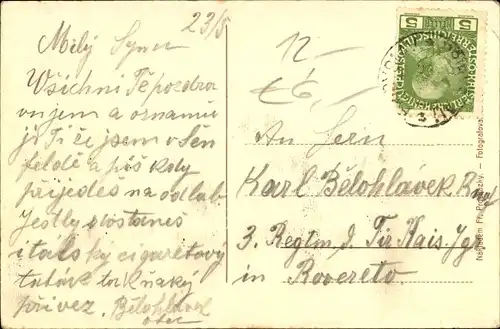 23/5
Milý Synu
Všichni Tě pozdra
vujem a oznamu
ji Ti že jsem v Sen
feldě a piš kdy
přijedeš na odlab
Jestly dostaneš
italsky cigaretový
tabák tak ňaký
přivez. Bělohlávek
otec
12-
€6,-
5 5
An Hern
Karl Bělohlávek
3. Regtm. d. Tir Kais. Jgr
in Rovereto.
Nákladem Fr. Procházky. - Fotografoval